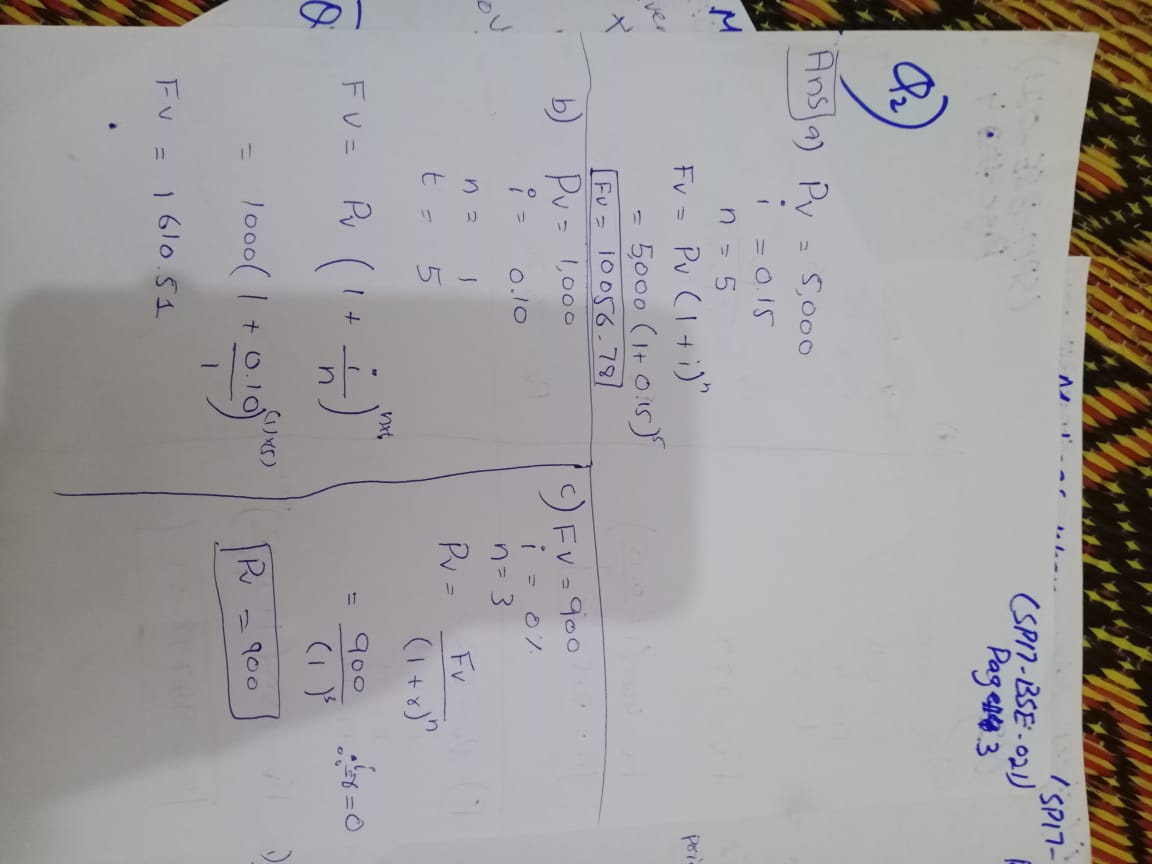 (SP17-BSE-021)
Page 3
Q2)
Ans a) Pv = 5,000
i = 0.15
n = 5
Fv = Pv (1 + i)^n
= 5,000 (1 + 0.15)^5
Fv = 10056.78
b) Pv = 1,000
i = 0.10
n = 1
t = 5
Fv = Pv (1 + i/n)^nxt
= 1000 (1 + 0.10/1)^(1)x(5)
Fv = 1610.51
c) Fv = 900
i = 0%
n = 3
Pv = Fv/(1 + r)^n
= 900/(1)^3 ∵ i=r=0
Pv = 900
(SP17-